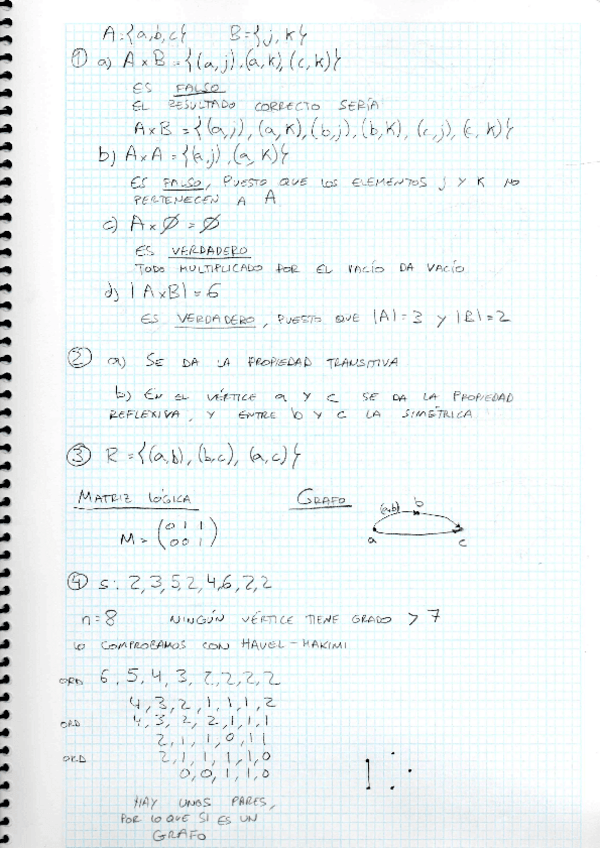 A:{a,b,c} B={j,k}
① a) A×B={(a,j),(a,k),(c,k)}
ES FALSO
EL RESULTADO CORRECTO SERÍA
A×B={(a,j),(a,k),(b,j),(b,k),(c,j),(c,k)}
b) A×A={(a,j),(a,k)}
ES FALSO, PUESTO QUE LOS ELEMENTOS j Y K NO
PERTENECEN A A
c) A×∅=∅
ES VERDADERO
TODO MULTIPLICADO POR EL VACÍO DA VACÍO
d) |A×B|=6
ES VERDADERO, PUESTO QUE |A|=3 y |B|=2
② a) SE DA LA PROPIEDAD TRANSITIVA
b) EN EL VÉRTICE a Y c SE DA LA PROPIEDAD
REFLEXIVA, Y ENTRE b Y c LA SIMÉTRICA
③ R={(a,b),(b,c),(a,c)}
MATRIZ LÓGICA GRAFO
M=(0 1 1
0 0 1)
(a,b) b
a c
④ s: 2,3,5,2,4,6,2,2
n=8 NINGÚN VÉRTICE TIENE GRADO > 7
LO COMPROBAMOS CON HAVEL-HAKIMI
ORD 6,5,4,3,2,2,2,2
4,3,2,1,1,1,2
ORD 4,3,2,2,1,1,1
2,1,1,0,1,1
ORD 2,1,1,1,1,0
0,0,1,1,0
HAY UNOS PARES,
POR LO QUE SI ES UN
GRAFO